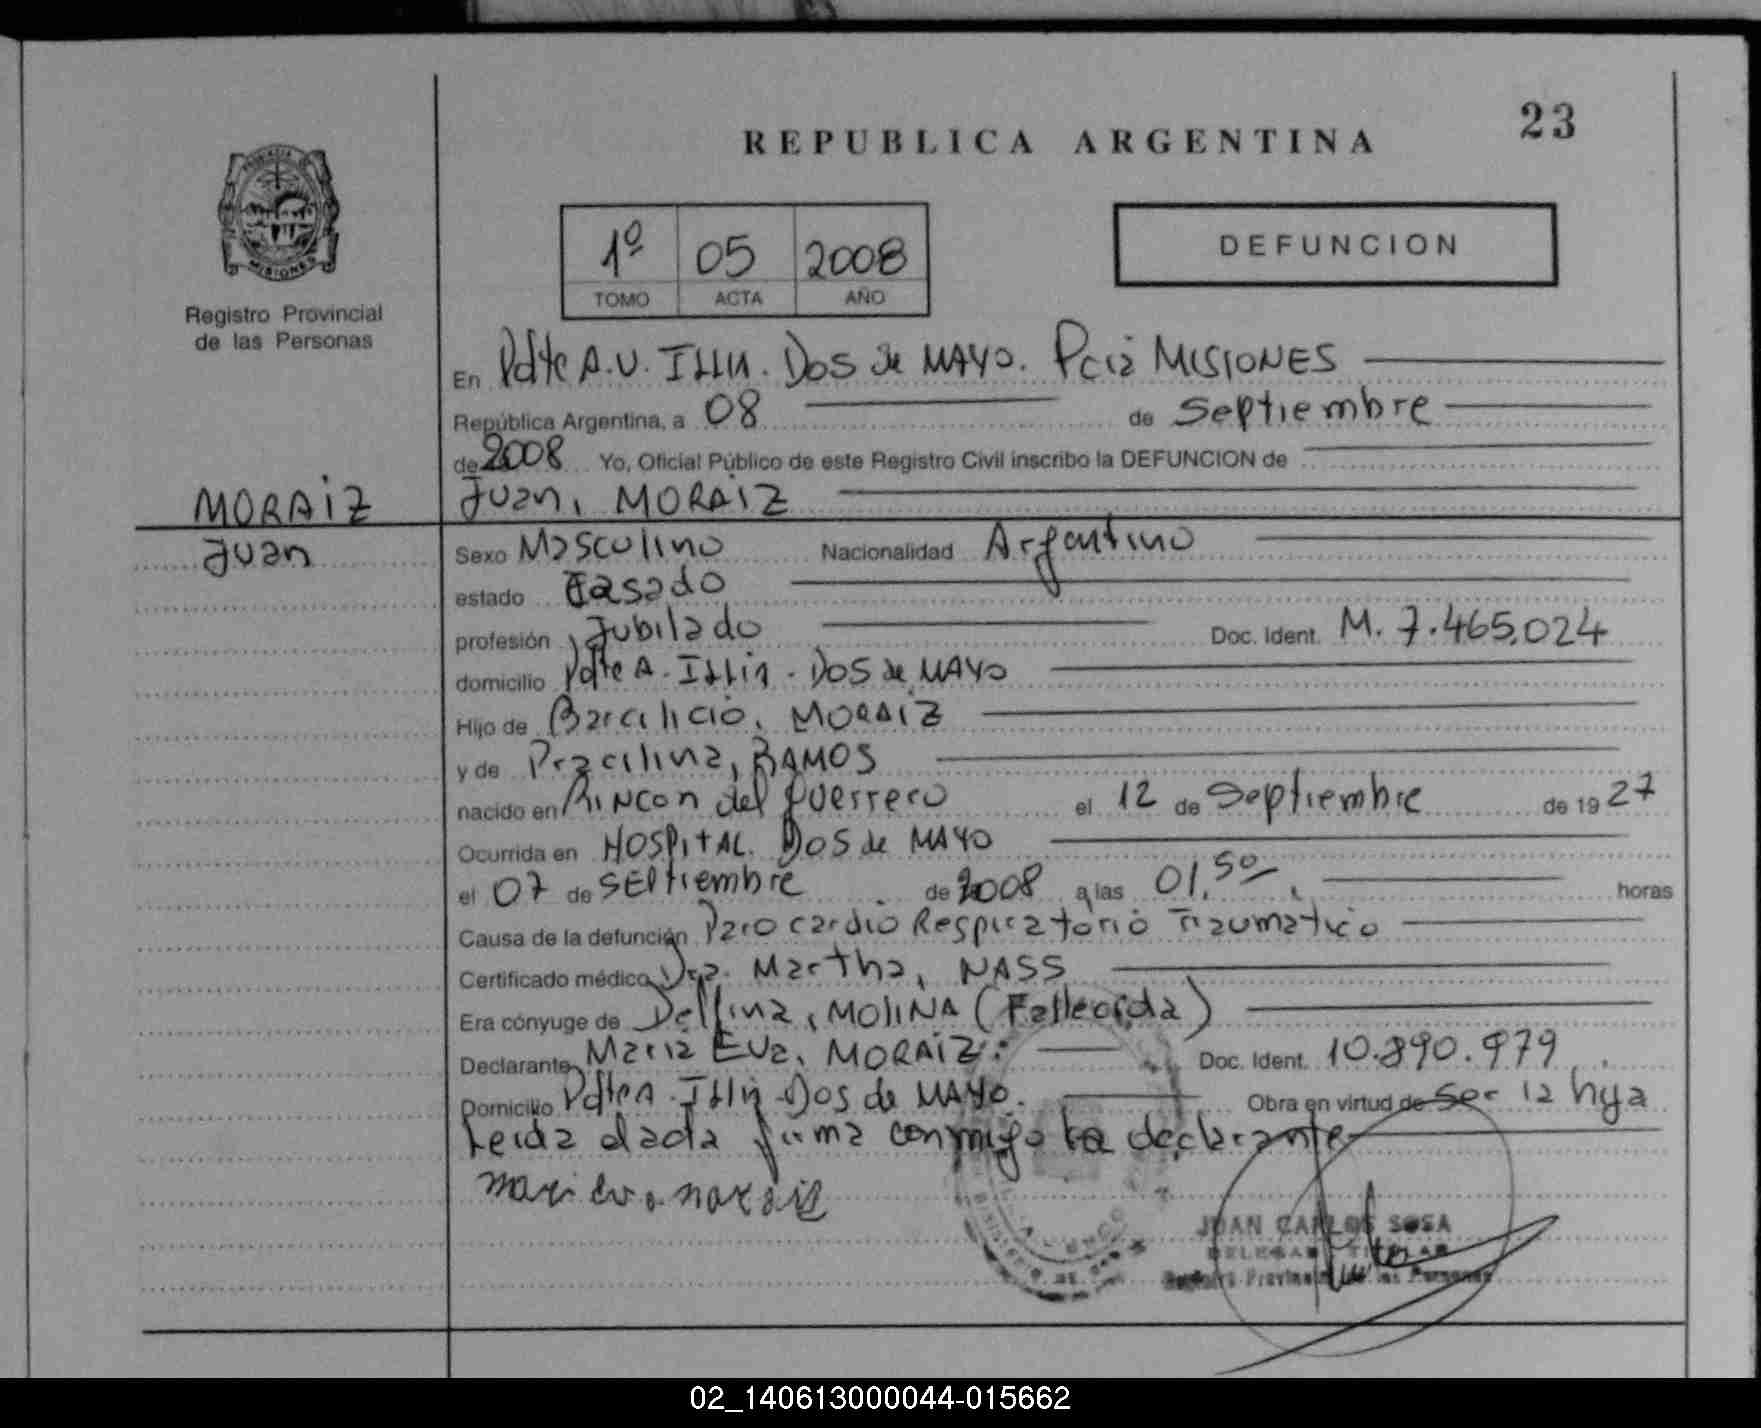 23
REPUBLICA ARGENTINA
MISIONES
Registro Provincial
de las Personas
1º 05 2008
TOMO ACTA AÑO
DEFUNCION
En Pdte A.U. Illia. Dos de MAYO. Pcia MISIONES
República Argentina, a 08 de septiembre
de 2008 Yo, Oficial Público de este Registro Civil inscribo la DEFUNCION de
Juan, MORAIZ
MORAIZ
Juan
Sexo Masculino Nacionalidad Argentino
estado Casado
profesión Jubilado Doc. Ident. M. 7.465.024
domicilio Pdte A. Illia - DOS de MAYO
Hijo de Barcilicio, MORAIZ
y de Pracilina, RAMOS
nacido en Rincon del guerrero el 12 de Septiembre de 19 27
Ocurrida en HOSPITAL. DOS de MAYO
el 07 de SEptiembre de 2008 a las 01,50 horas
Causa de la defunción Paro cardio Respiratorio Traumatico
Certificado médico Dra. Martha, NASS
Era cónyuge de Delfina, MOLINA (Fallecida)
Declarante Maria Eva, MORAIZ. Doc. Ident. 10.890.979
Domicilio Pdte A. Illia - Dos de MAYO. Obra en virtud de ser la hija
Leida el acta firma conmigo la declarante
mari eva moraiz
JUAN CARLOS SOSA
DELEGADO TITULAR
Registro Provincial de las Personas
02_140613000044-015662